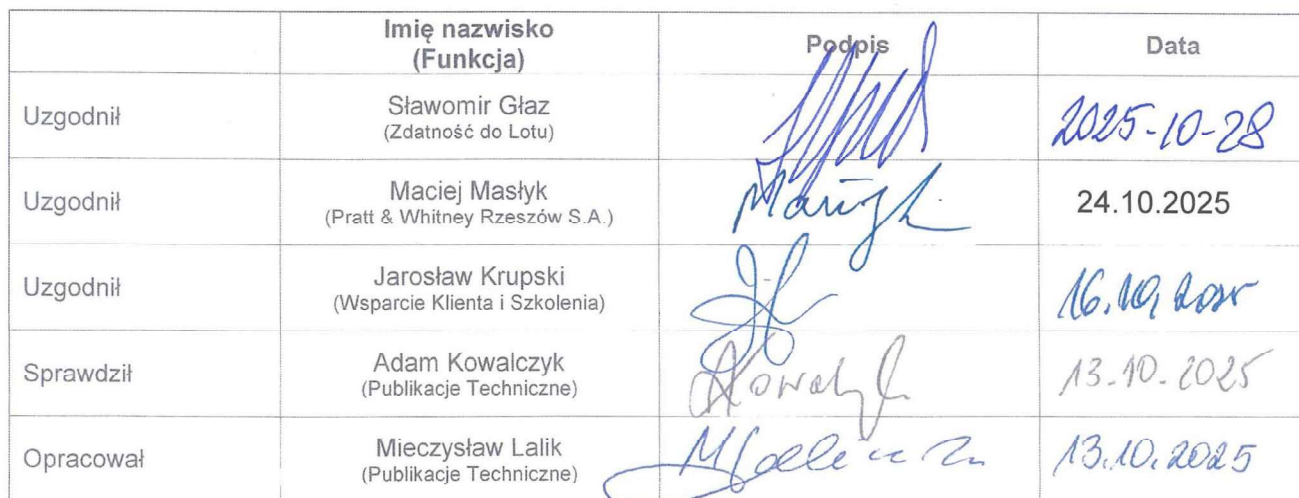 Imię nazwisko
(Funkcja)
Podpis
Data
Uzgodnił
Sławomir Głaz
(Zdatność do Lotu)
2025-10-28
Uzgodnił
Maciej Masłyk
(Pratt & Whitney Rzeszów S.A.)
24.10.2025
Uzgodnił
Jarosław Krupski
(Wsparcie Klienta i Szkolenia)
16.10.2025
Sprawdził
Adam Kowalczyk
(Publikacje Techniczne)
13.10.2025
Opracował
Mieczysław Lalik
(Publikacje Techniczne)
13.10.2025